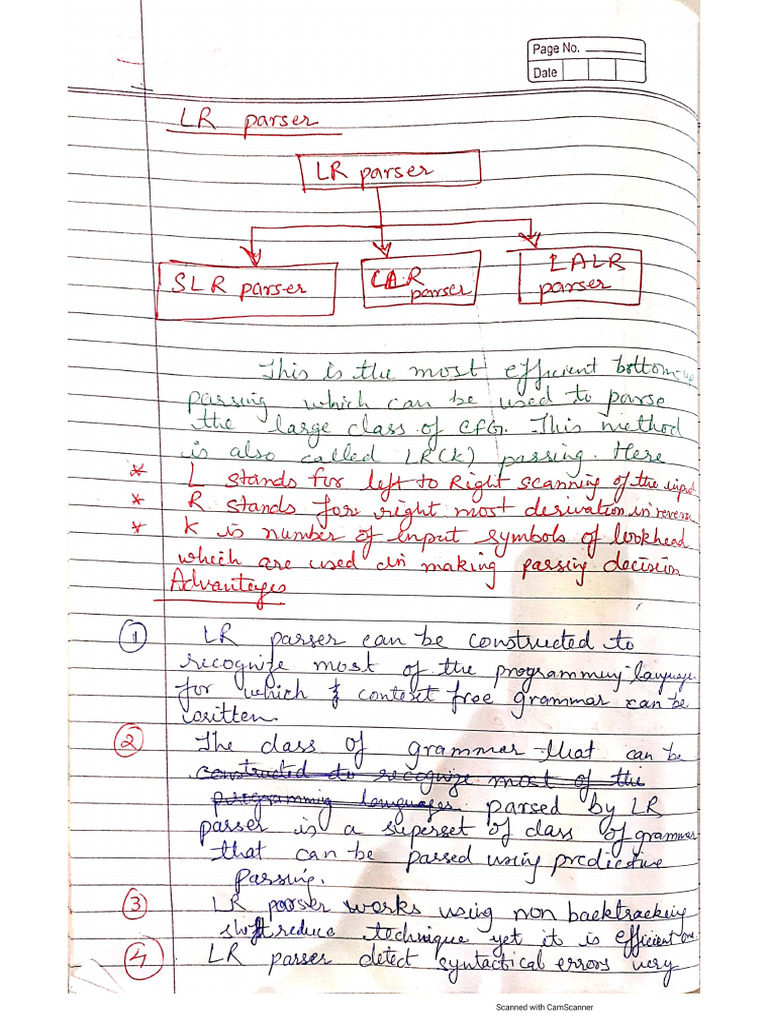 Page No.
Date
LR parser
LR parser
SLR parser
CLR parser
LALR parser
This is the most efficient bottom-up
parsing which can be used to parse
the large class of CFG. This method
is also called LR(K) parsing. Here
* L stands for left to Right scanning of the input
* R stands for right most derivation in reverse
* K is number of input symbols of lookhead
which are used in making parsing decision
Advantages
1 LR parser can be constructed to
recognize most of the programming languages
for which context free grammar can be
written.
2 The class of grammar that can be
constructed to recognize most of the
programming languages parsed by LR
parser is a superset of class of grammar
that can be parsed using predictive
parsing.
3 LR parser works using non backtracking
shift reduce technique yet it is efficient one
4 LR parser detect syntactical errors very
Scanned with CamScanner